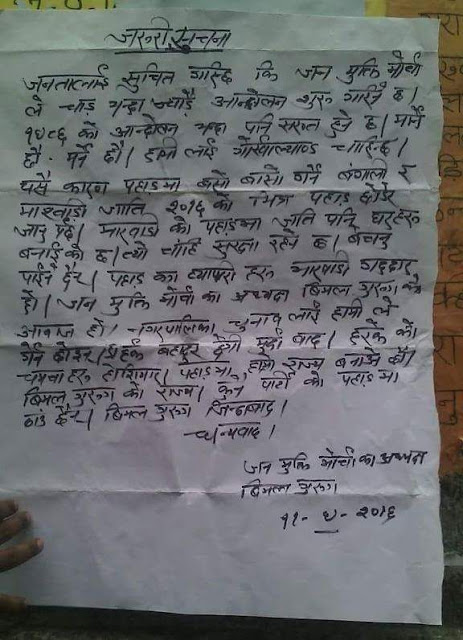 जरुरी सुचना
जनतालाई सुचित गरिन्छ कि जन मुक्ति मोर्चा
ले चाडै भन्दा चाडै आन्दोलन शुरु गरिने छ।
१९८६ को आन्दोलन भन्दा पनि सख्त हुने छ। मार्ने
हो। मर्ने हो। हामी लाई गोर्खाल्याण्ड चाहिन्छ।
यसै कारण पहाडमा बसो बासो गर्ने बंगाली र
मारवाडी जाति २०१६ को भित्र पहाड छोडेर
जानु पर्छ। मारवाडी को पहाडमा जति पनि घरहरु
बनाई को छ। त्यो चाहि सुरक्षा रहने छ। बेचन
पाईने छैन। पहाड का व्यापारी हरु मारवाडी गद्दार
हो। जन मुक्ति मोर्चा का अध्यक्ष बिमल गुरुङ को
आवाज हो। नगरपालिका चुनाव लाई हामी ले
हुन दिदैन। हर्क बहादुर छेत्री मुर्दा बाद। हर्क को
चम्चा हरु होशियार। पहाडमा हामी राज्य बनाउने छौं।
बिमल गुरुङ को राज्य। कुनै पार्टी को पहाडमा
ठाउँ छैन। बिमल गुरुङ जिन्दाबाद।
धन्यवाद।
जन मुक्ति मोर्चा का अध्यक्ष
बिमल गुरुङ
११-५-२०१६